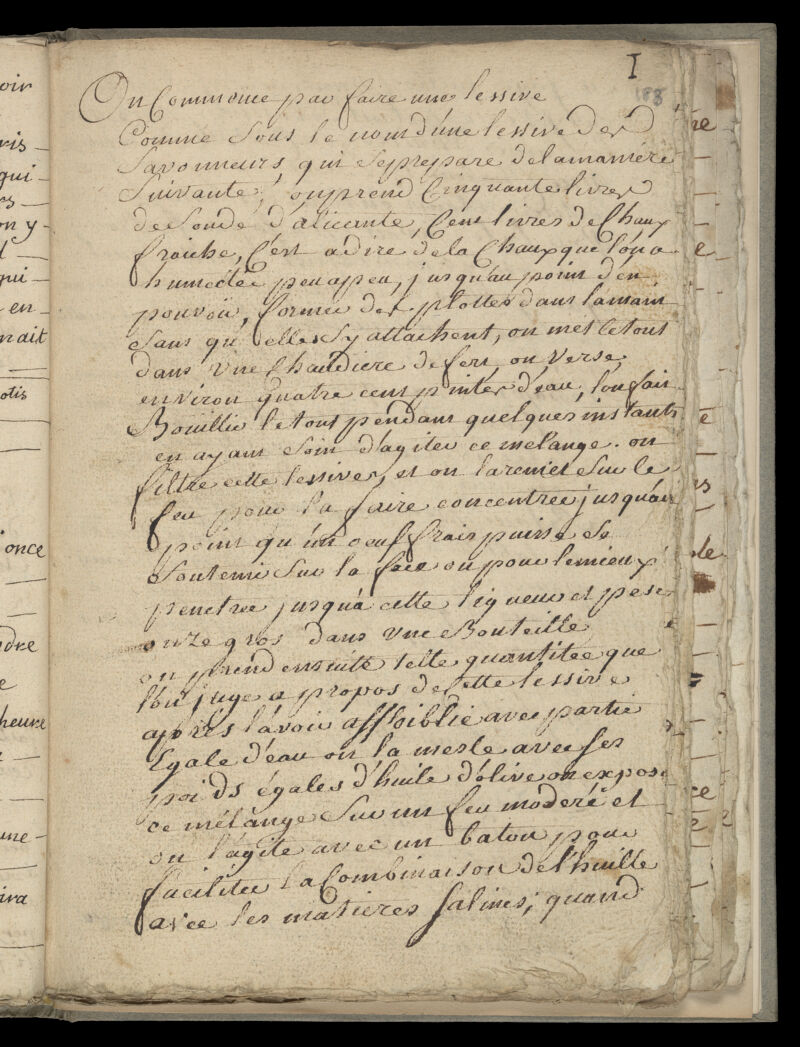 I
188
On Commence par faire une lessive
Comme sous le nom d'une lessive des
Savonneurs, qui se prepare de la maniere
Suivante, on prend Cinquante livres
de Soude d'alicante, Cent livres de Chaux
fraiche, C'est a dire de la Chaux que l'on a
humectée peu a peu, jusqu'au point d'en
pouvoir, former des plottes dans la main
Sans qu'elles s'y attachent, on met le tout
dans une Chaudiere de fer, on verse
environ quatre cent pintes d'eau, l'on fait
Boüillir le tout pendant quelques instants
en ayant soin d'agiter ce mélange. on
filtre cette lessive, et on la remet sur le
feu pour la faire concentrer jusqu'au
point qu'un oeuf frais puisse se
Soutenir sur la face ou pour le mieux
penetre jusqu'a cette liqueur et pese
onze gros dans une Bouteille
on prend ensuite telle quantitée que
l'on juge a propos de cette lessive
après l'avoir affoiblie avec partie
Egale d'eau on la mesle avec ses
poids égales d'huile d'olive on expose
ce mélange sur un feu moderé et
on l'agite avec un baton pour
faciliter la Combinaison de l'huille
avec les matieres salines; quand
oir
ris
qui
rs
on y
qui
en
nait
otis
once
ndre
e
heure
une
ira
re
e
te
us
de
ce
e